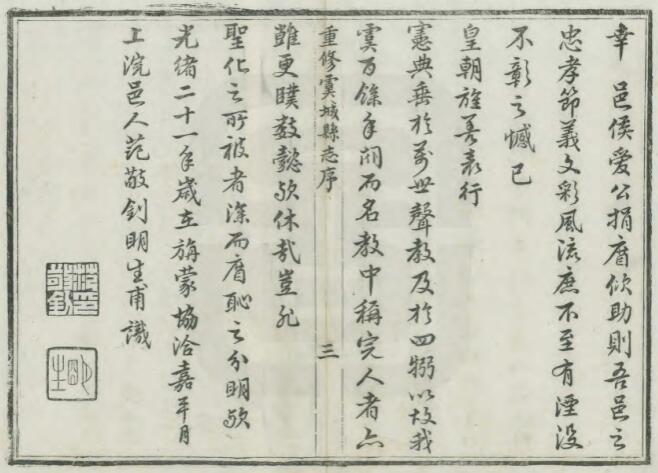 幸 邑侯愛公捐廉佽助則吾邑之
忠孝節義文彩風流庶不至有湮沒
不彰之憾已
皇朝旌善表行
憲典垂於萬世聲教及於四彌以故我
虞百餘年間而名教中稱完人者亦
重修虞城縣志序
三
雖更僕數懿歟休哉豈非
聖化之所被者深而廉恥之分明歟
光緒二十一年歲在旃蒙協洽嘉平月
上浣邑人范敬釗明生甫識